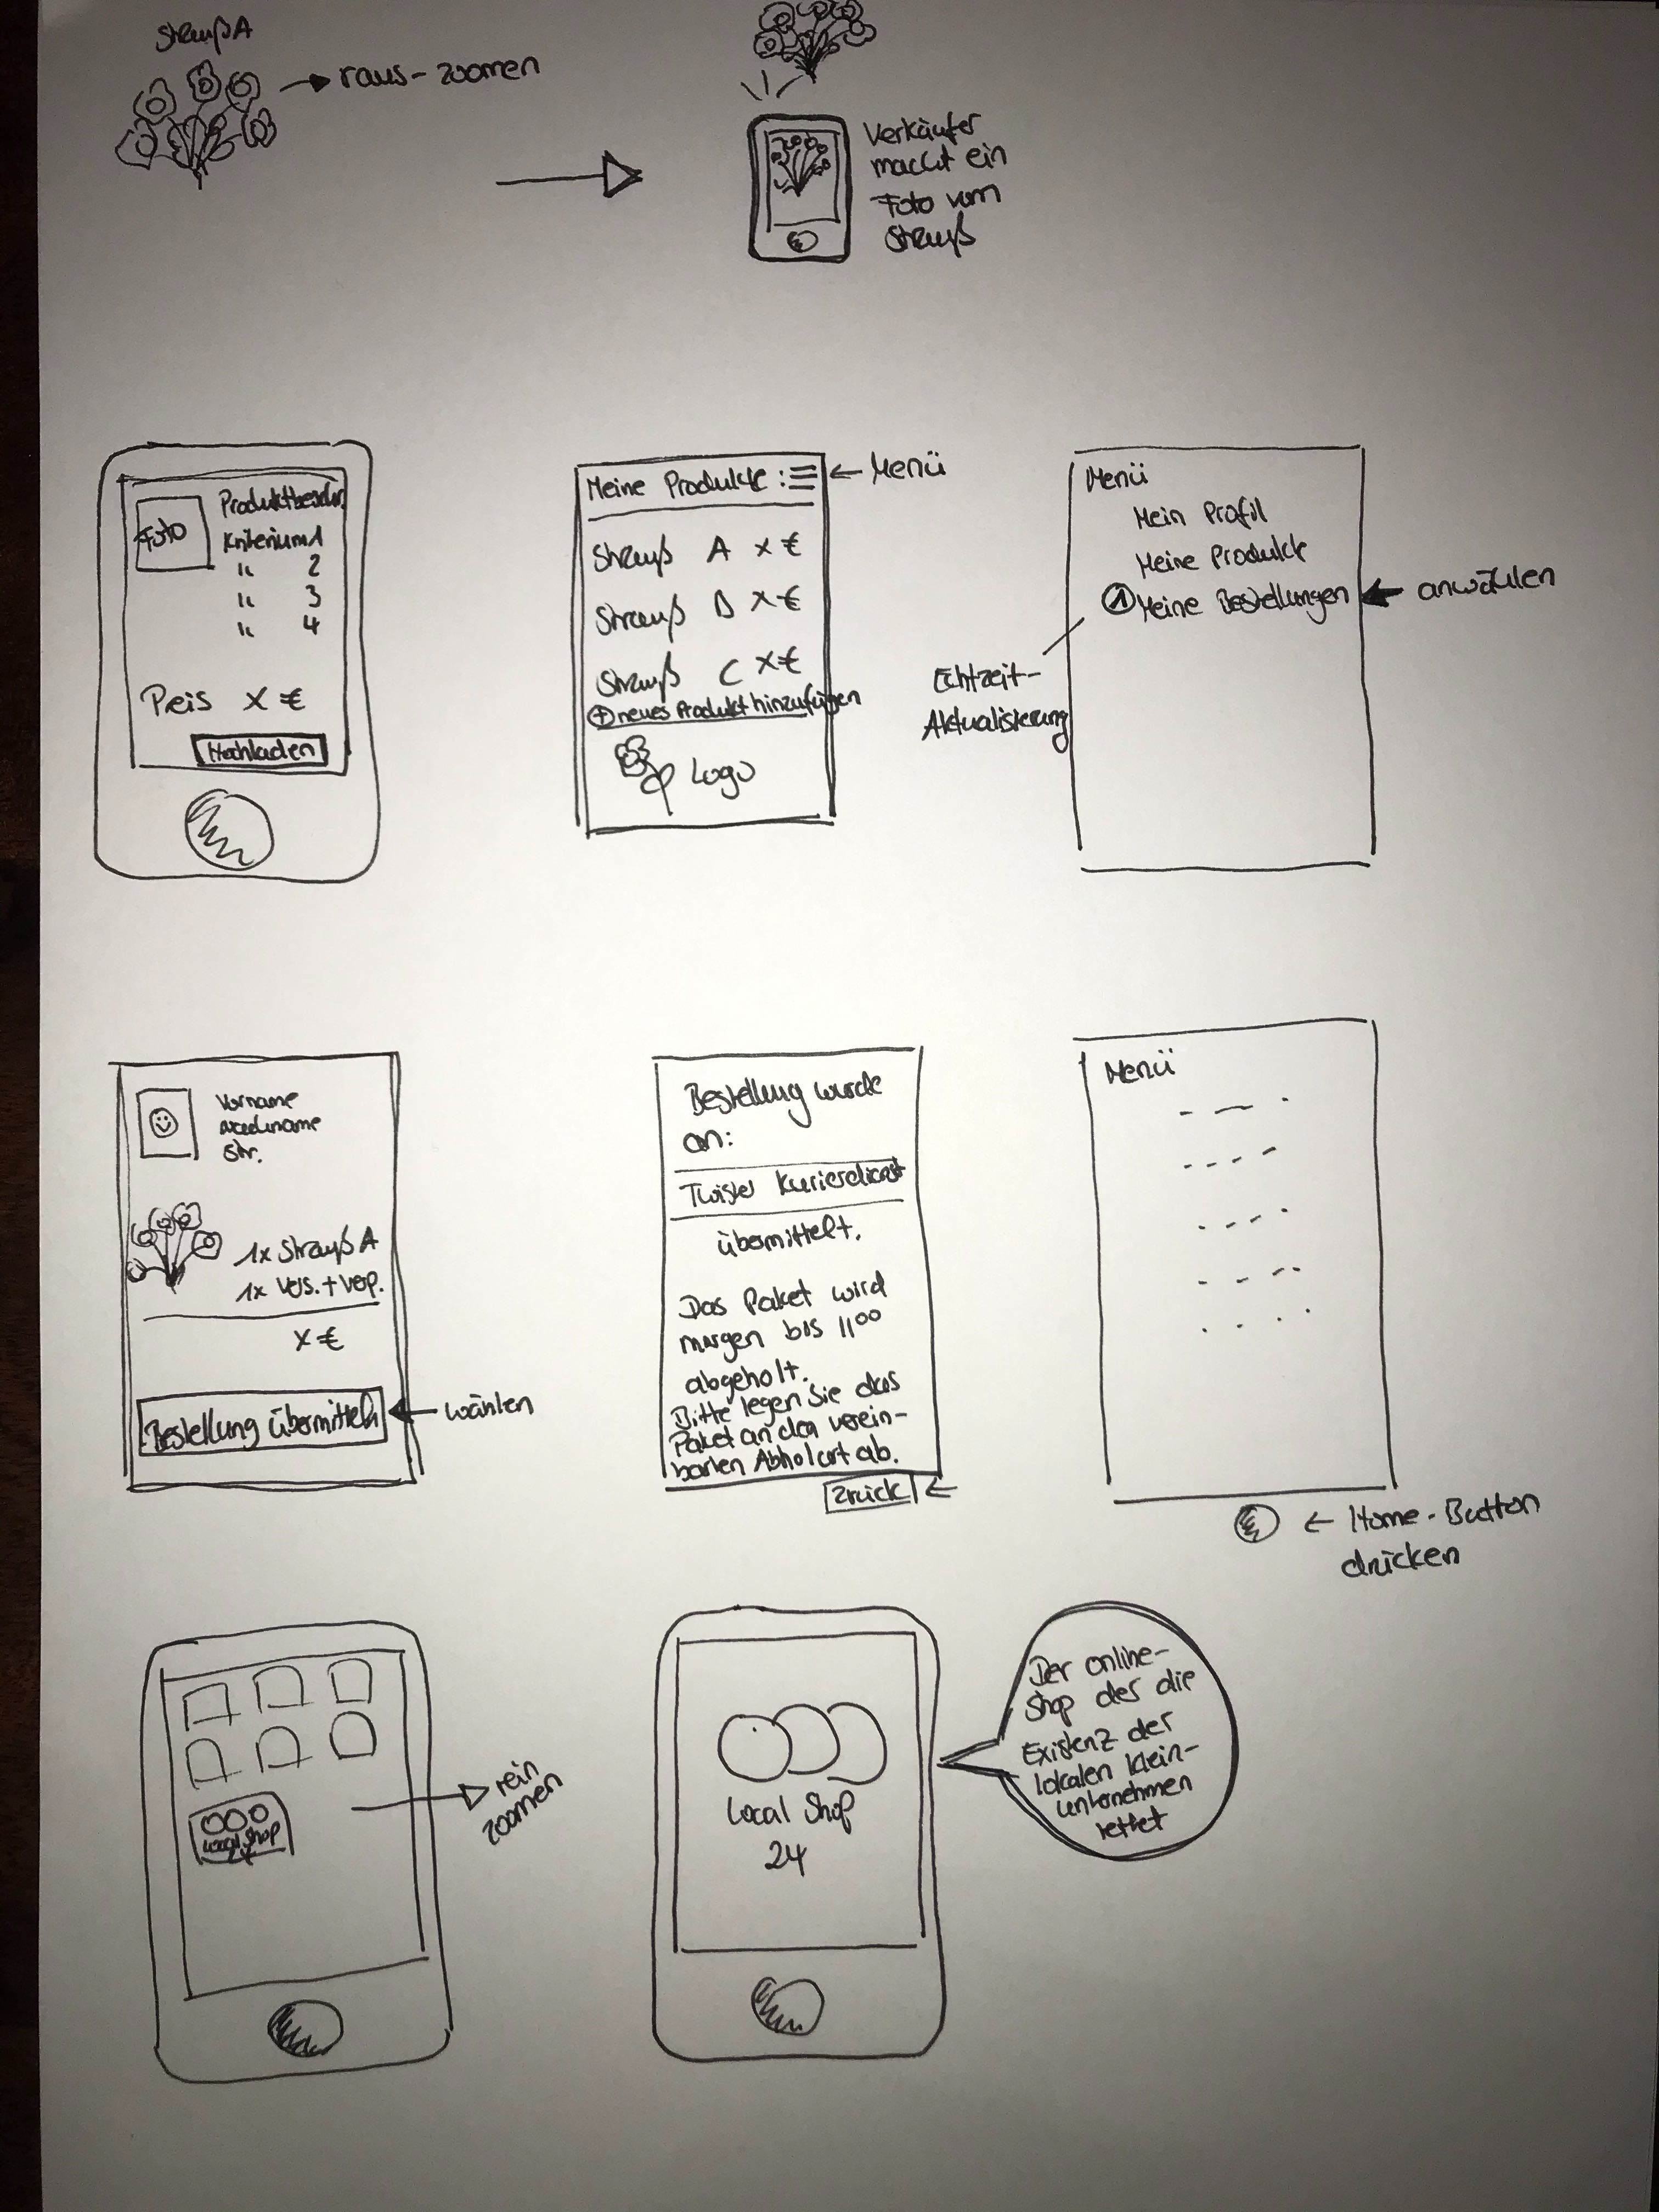 Strauß A
raus-zoomen
Verkäufer
macht ein
Foto vom
Strauß
Foto
Produktbeschr.
Kriterium 1
" 2
" 3
" 4
Preis x €
Hochladen
Meine Produkte :
← Menü
Strauß A x €
Strauß B x €
Strauß C x €
+ neues Produkt hinzufügen
Logo
Menü
Mein Profil
Meine Produkte
1 Meine Bestellungen
← anwählen
Echtzeit-
Aktualisierung
Vorname
Nachname
Str.
1x Strauß A
1x Vers. + Verp.
x €
Bestellung übermitteln
← wählen
Bestellung wurde
an:
Twister Kurierdienst
übermittelt.
Das Paket wird
morgen bis 11 00
abgeholt.
Bitte legen Sie das
Paket an den verein-
barten Abholort ab.
Zrück ←
Menü
← Home-Button
drücken
Local Shop
24
rein
zoomen
Local Shop
24
Der online-
shop der die
Existenz der
lokalen Klein-
unternehmen
rettet